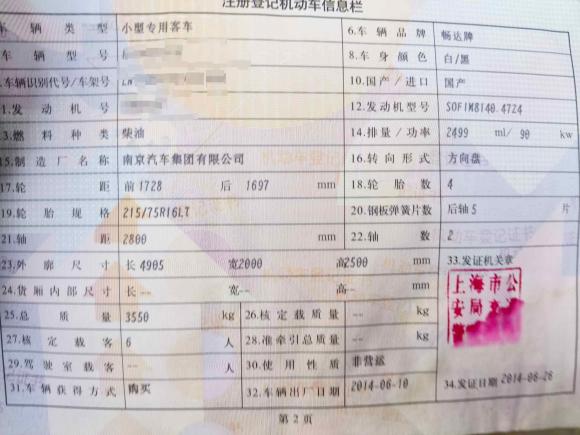 注册登记机动车信息栏
车辆类型 小型专用客车 6.车辆品牌 畅达牌
车辆型号 8.车身颜色 白/黑
.车辆识别代号/车架号 10.国产/进口 国产
1.发动机号 12.发动机型号 SOFIM8140.47Z4
3.燃料种类 柴油 14.排量/功率 2499 ml/ 90 kw
15.制造厂名称 南京汽车集团有限公司 16.转向形式 方向盘
17.轮距 前1728 后1697 mm 18.轮胎数 4
19.轮胎规格 215/75R16LT 20.钢板弹簧片数 后轴5 片
21.轴距 2800 mm 22.轴数 2
23.外廓尺寸 长4905 宽2000 高2500 mm 33.发证机关章
24.货厢内部尺寸 长-- 宽-- 高-- mm 上海市公
25.总质量 3550 kg 26.核定载质量 -- kg 安局
27.核定载客 6 人 28.准牵引总质量 -- kg
29.驾驶室载客 -- 人 30.使用性质 非营运
31.车辆获得方式 购买 32.车辆出厂日期 2014-06-10 34.发证日期 2014-06-26
第2页